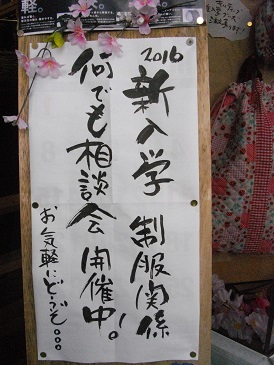 2016
新入学 制服関係
何でも相談会 開催中!
お気軽にどうぞ...
軽。